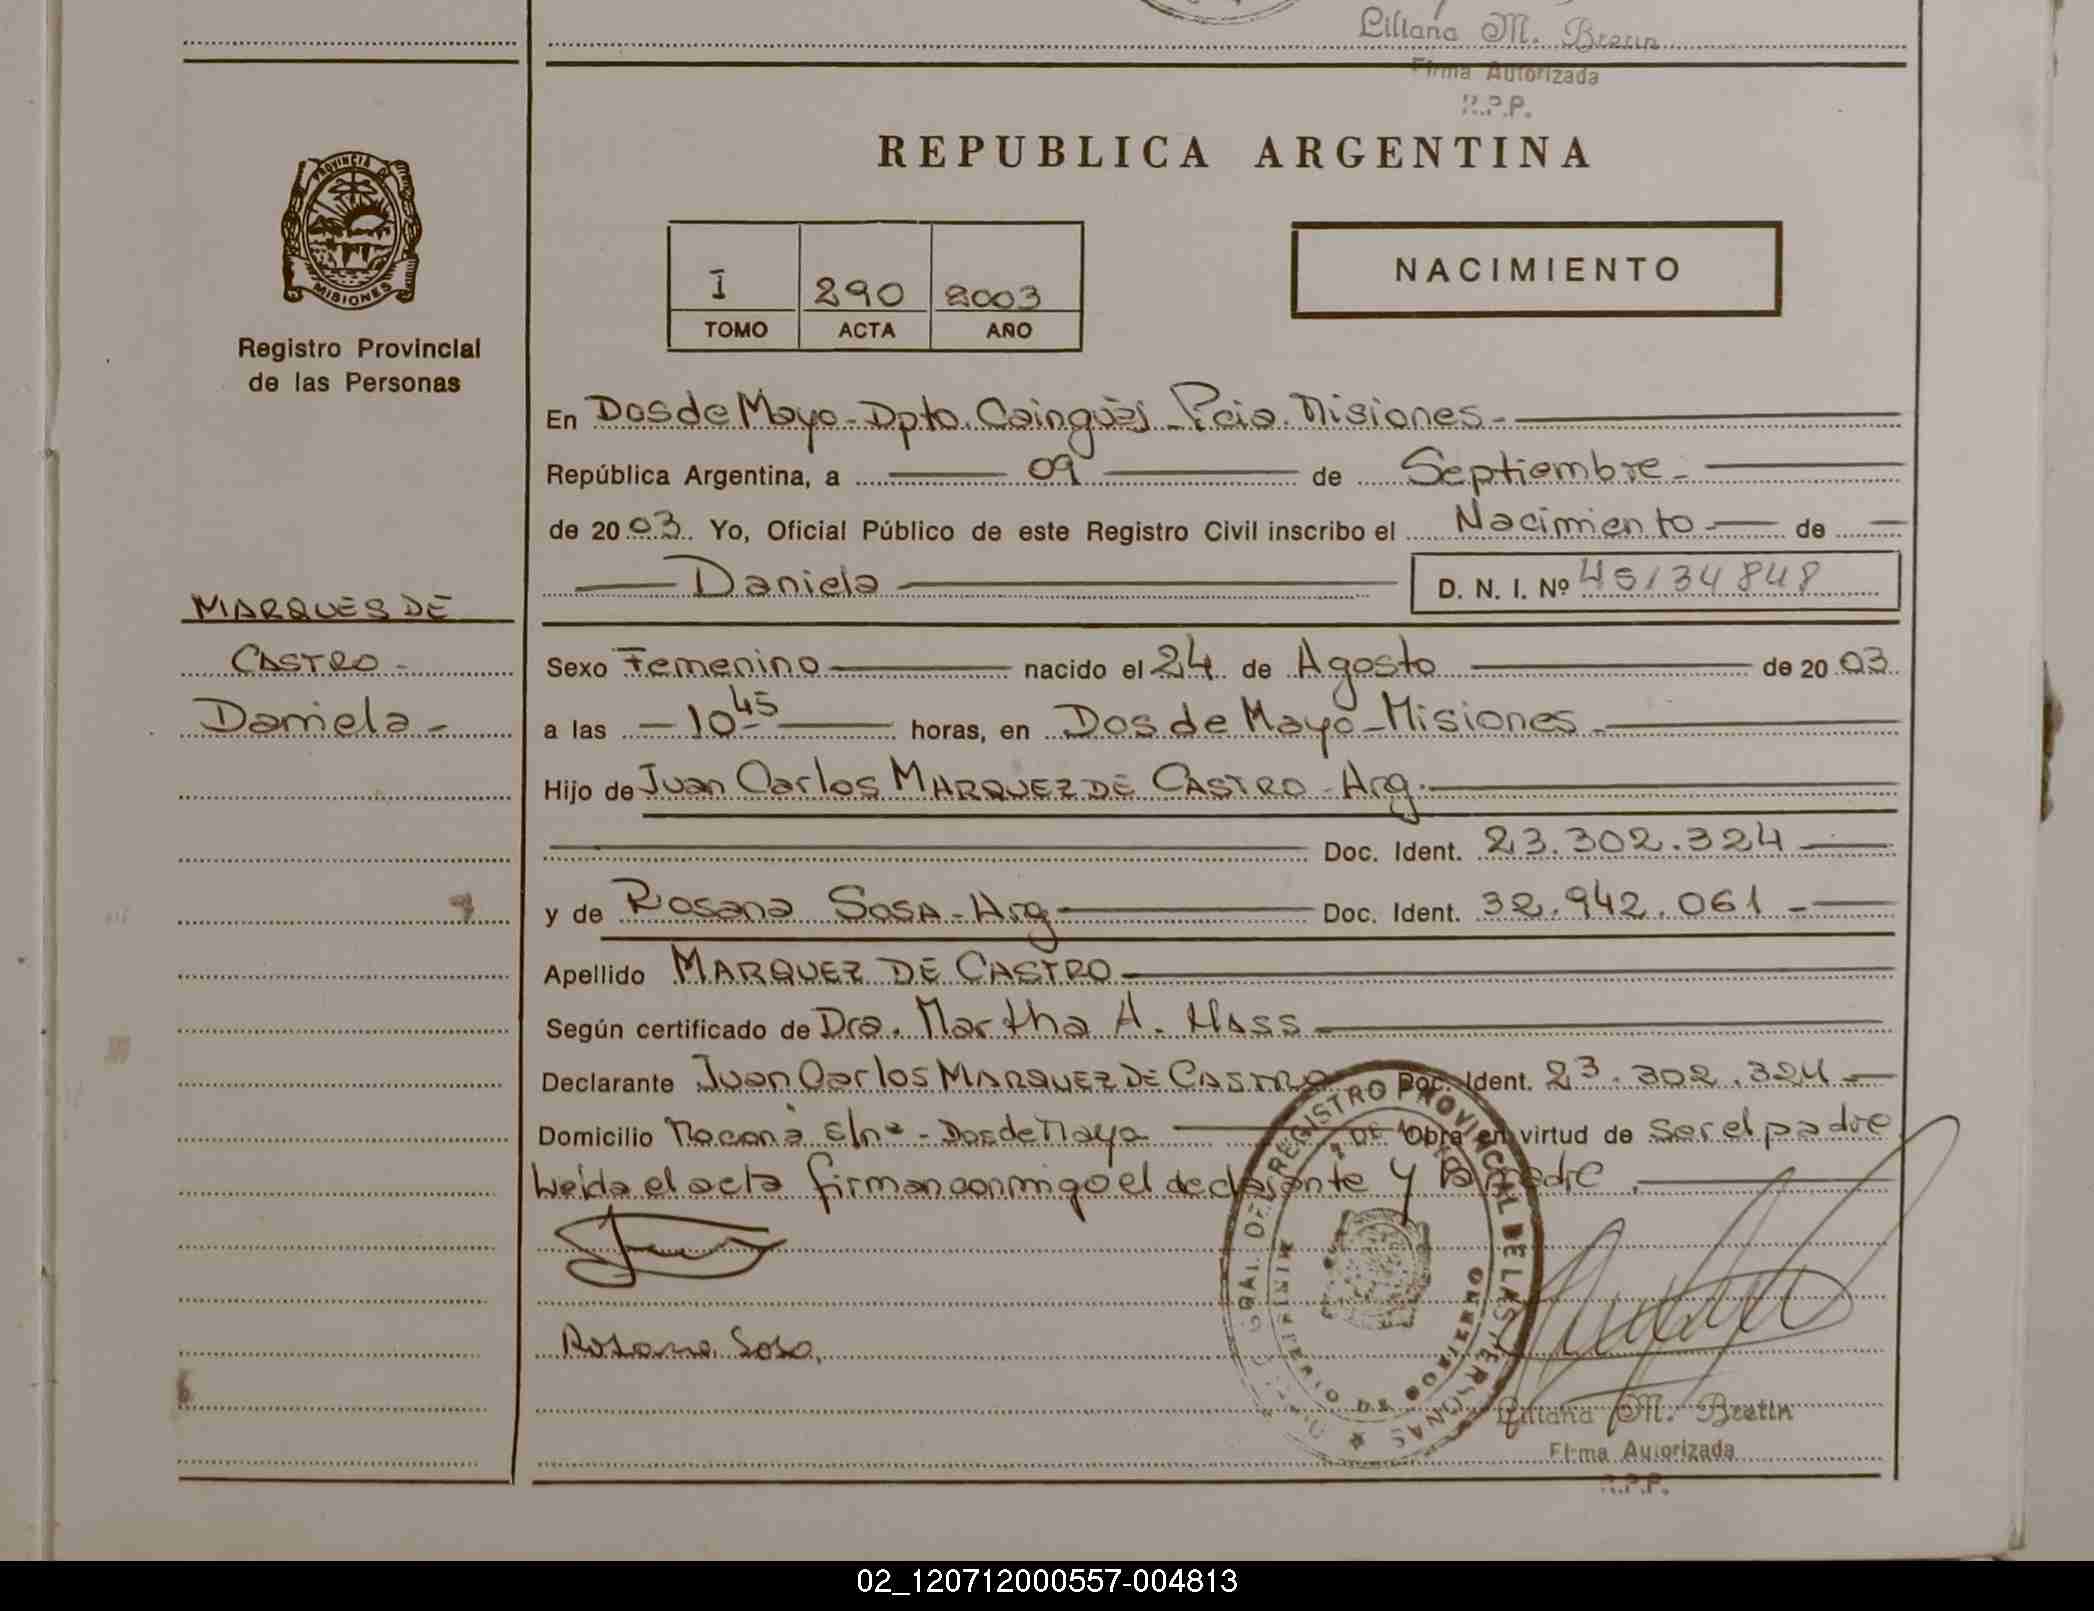 Liliana M. Bretin
Firma Autorizada
R.P.P.
REPUBLICA ARGENTINA
PROVINCIA DE
MISIONES
Registro Provincial
de las Personas
I 290 2003
TOMO ACTA AÑO
NACIMIENTO
En Dos de Mayo - Dpto. Cainguás - Pcia. Misiones -
República Argentina, a 09 de Septiembre -
de 2003. Yo, Oficial Público de este Registro Civil inscribo el Nacimiento de
Daniela D. N. I. Nº 45134848
MARQUES DE
CASTRO -
Daniela -
Sexo Femenino nacido el 24 de Agosto de 2003
a las - 10 45 horas, en Dos de Mayo - Misiones -
Hijo de Juan Carlos MARQUEZ DE CASTRO - Arg.
Doc. Ident. 23.302.324
y de Rosana SOSA - Arg Doc. Ident. 32.942.061 -
Apellido MARQUEZ DE CASTRO
Según certificado de Dra. Martha A. HASS
Declarante Juan Carlos MARQUEZ DE CASTRO Doc. Ident. 23.302.324
Domicilio Moconá s/nº - Dos de Mayo Obra en virtud de ser el padre
Leída el acta firman conmigo el declarante y la madre.
Rosana Sosa.
GRAL. DEL REGISTRO PROVINCIAL DE LAS PERSONAS
MINISTERIO DE GOBIERNO
Liliana M. Bretin
Firma Autorizada
R.P.P.
02_120712000557-004813